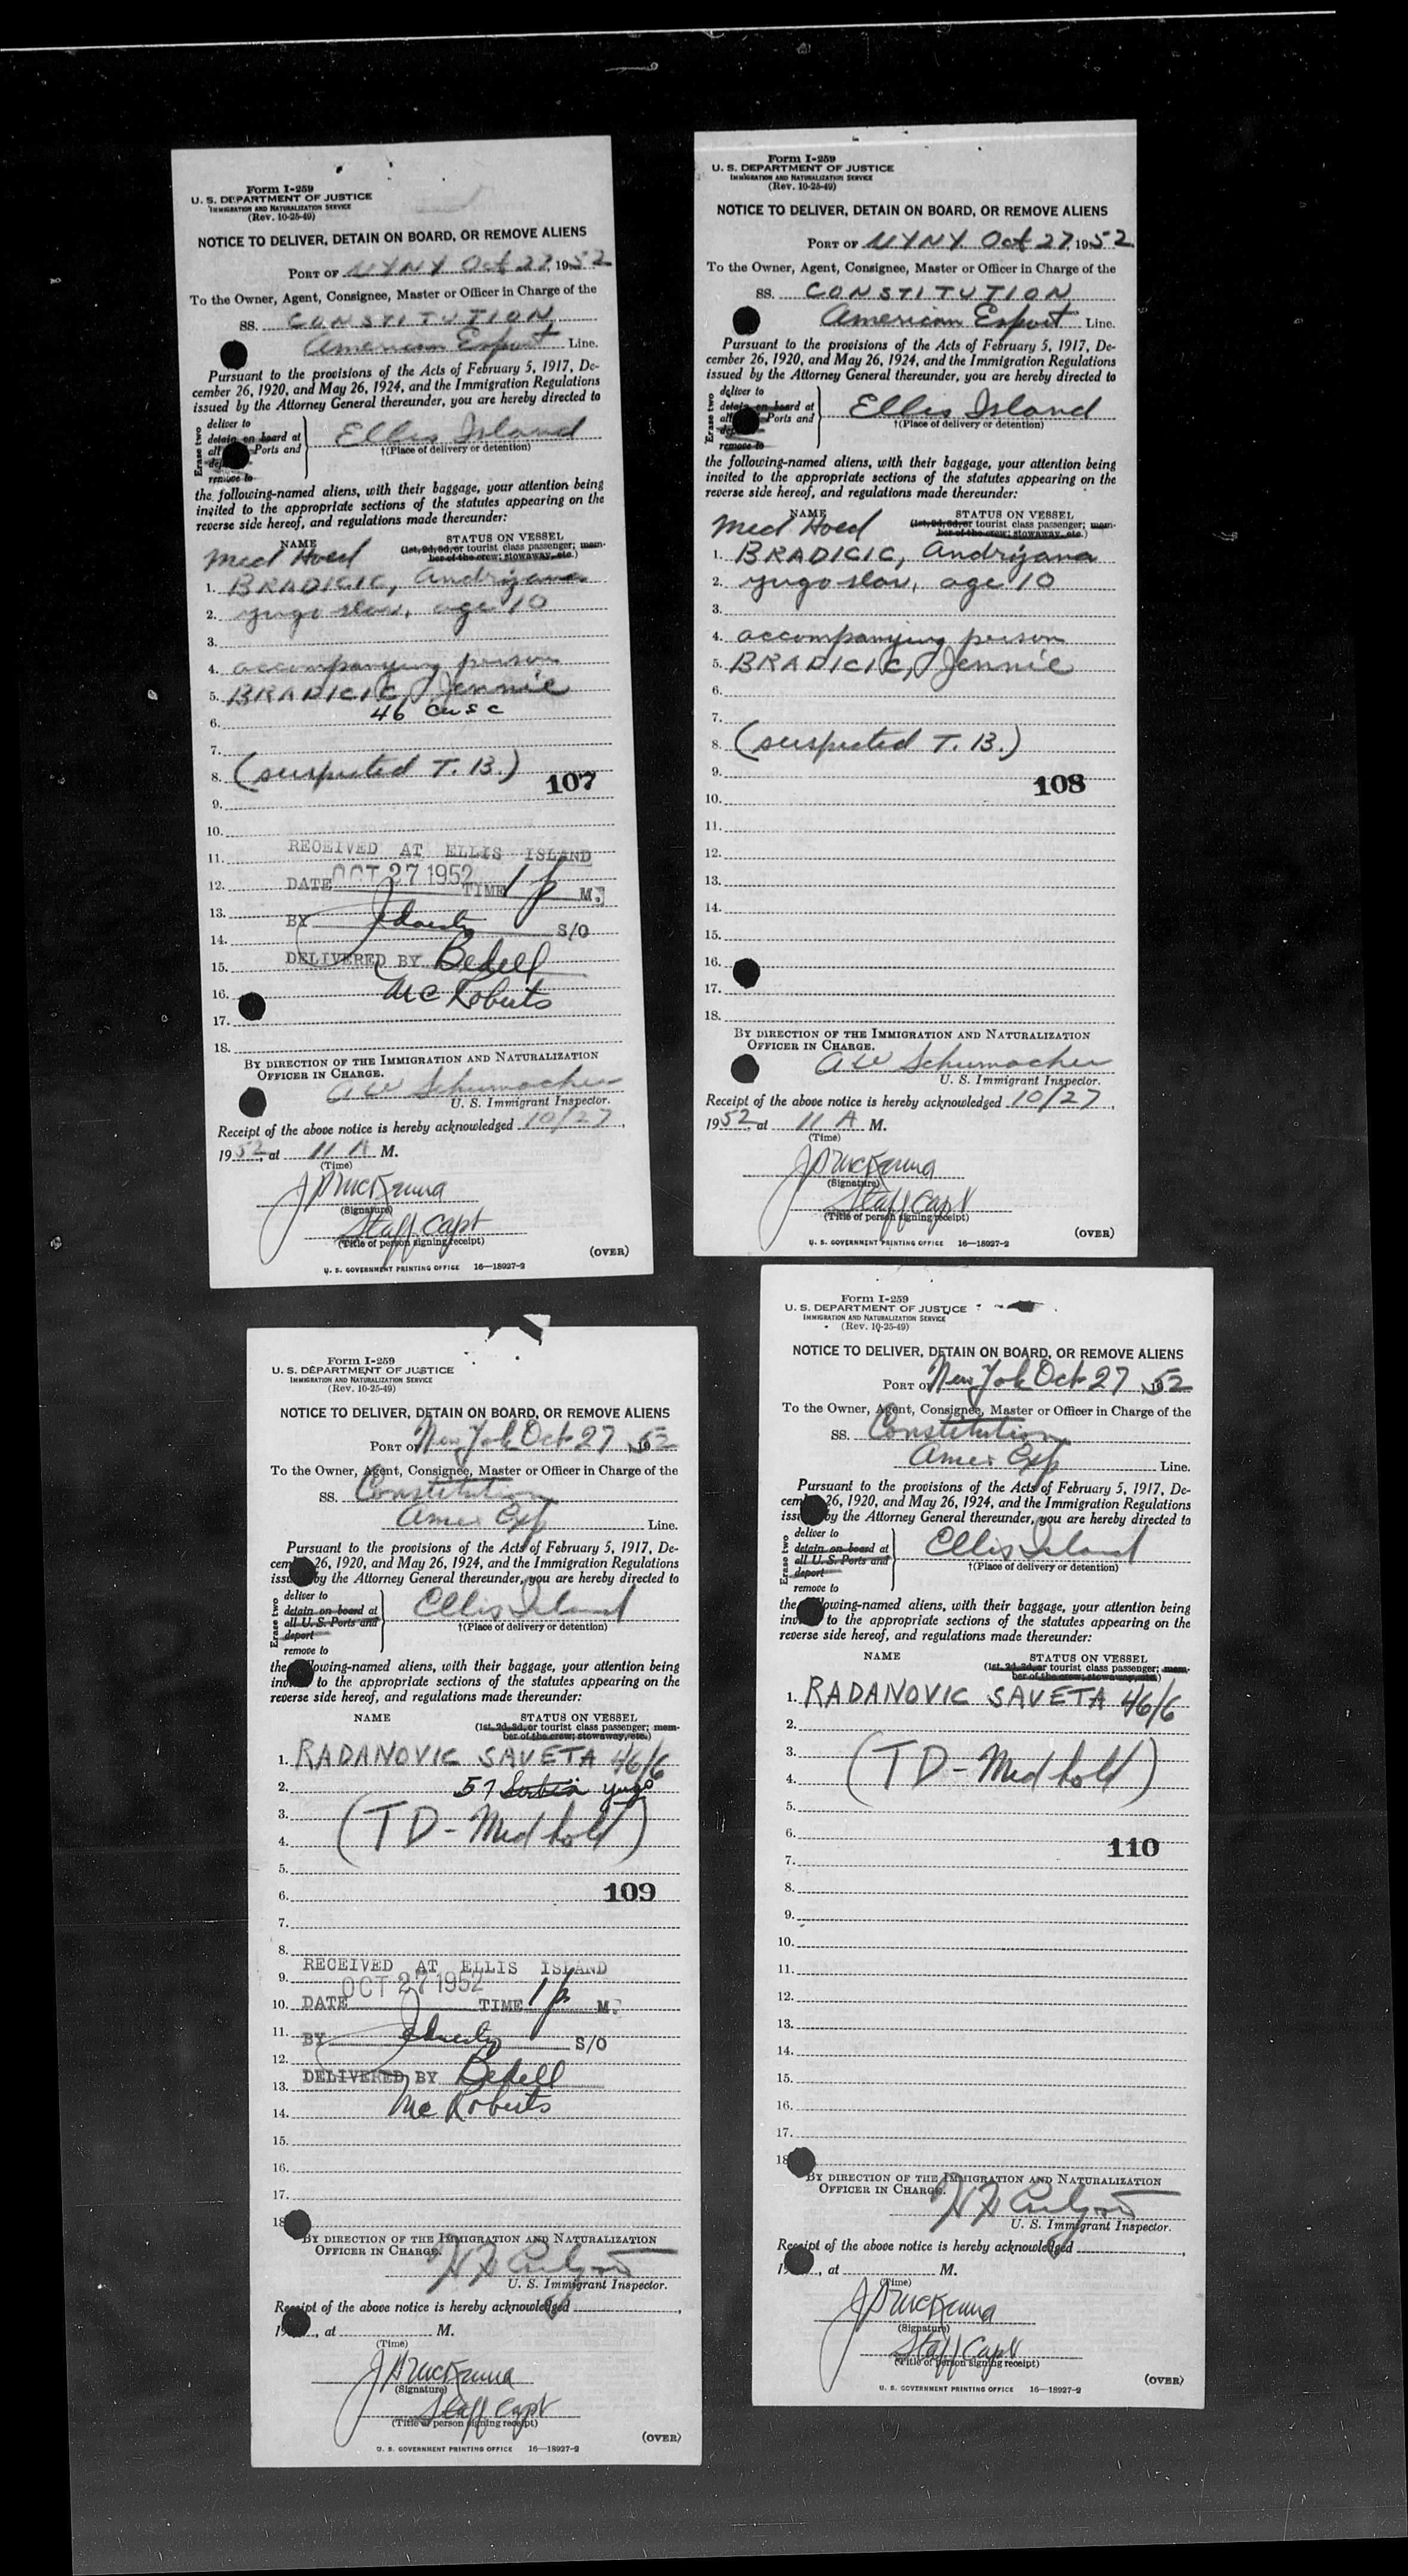 Form I-259
U. S. DEPARTMENT OF JUSTICE
IMMIGRATION AND NATURALIZATION SERVICE
(Rev. 10-25-49)
NOTICE TO DELIVER, DETAIN ON BOARD, OR REMOVE ALIENS
PORT OF NYNY Oct 27, 1952
To the Owner, Agent, Consignee, Master or Officer in Charge of the
SS. CONSTITUTION
American Export Line.
Pursuant to the provisions of the Acts of February 5, 1917, De-
cember 26, 1920, and May 26, 1924, and the Immigration Regulations
issued by the Attorney General thereunder, you are hereby directed to
Erase two
deliver to
detain on board at
all Ports and
remove to
Ellis Island
†(Place of delivery or detention)
the following-named aliens, with their baggage, your attention being
invited to the appropriate sections of the statutes appearing on the
reverse side hereof, and regulations made thereunder:
NAME STATUS ON VESSEL
(1st, 2d, 3d, or tourist class passenger; mem-
ber of the crew; stowaway, etc.)
Med Hold
1. BRADICIC, Andrijana
2. yugoslav, age 10
3.
4. accompanying person
5. BRADICIC, Jennie
6. 46 cusc
7.
8. (suspected T. B.)
107
9.
10.
11. RECEIVED AT ELLIS ISLAND
12. DATE OCT 27 1952 TIME 1 p M.
13. BY S/O
14.
15. DELIVERED BY Bedell
16. McRoberts
17.
18.
BY DIRECTION OF THE IMMIGRATION AND NATURALIZATION
OFFICER IN CHARGE.
A W Schumacher
U. S. Immigrant Inspector.
Receipt of the above notice is hereby acknowledged 10/27,
1952, at 11 A M.
(Time)
J D McKenna
(Signature)
Staff Capt
(Title of person signing receipt)
(OVER)
U. S. GOVERNMENT PRINTING OFFICE 16—18927-2
Form I-259
U. S. DEPARTMENT OF JUSTICE
IMMIGRATION AND NATURALIZATION SERVICE
(Rev. 10-25-49)
NOTICE TO DELIVER, DETAIN ON BOARD, OR REMOVE ALIENS
PORT OF NYNY Oct 27, 1952
To the Owner, Agent, Consignee, Master or Officer in Charge of the
SS. CONSTITUTION
American Export Line.
Pursuant to the provisions of the Acts of February 5, 1917, De-
cember 26, 1920, and May 26, 1924, and the Immigration Regulations
issued by the Attorney General thereunder, you are hereby directed to
Erase two
deliver to
detain on board at
all Ports and
remove to
Ellis Island
†(Place of delivery or detention)
the following-named aliens, with their baggage, your attention being
invited to the appropriate sections of the statutes appearing on the
reverse side hereof, and regulations made thereunder:
NAME STATUS ON VESSEL
(1st, 2d, 3d, or tourist class passenger; mem-
ber of the crew; stowaway, etc.)
Med Hold
1. BRADICIC, Andrijana
2. yugoslav, age 10
3.
4. accompanying person
5. BRADICIC, Jennie
6.
7.
8. (suspected T. B.)
9.
108
10.
11.
12.
13.
14.
15.
16.
17.
18.
BY DIRECTION OF THE IMMIGRATION AND NATURALIZATION
OFFICER IN CHARGE.
A W Schumacher
U. S. Immigrant Inspector.
Receipt of the above notice is hereby acknowledged 10/27,
1952, at 11 A M.
(Time)
J D McKenna
(Signature)
Staff Capt
(Title of person signing receipt)
(OVER)
U. S. GOVERNMENT PRINTING OFFICE 16—18927-2
Form I-259
U. S. DEPARTMENT OF JUSTICE
IMMIGRATION AND NATURALIZATION SERVICE
(Rev. 10-25-49)
NOTICE TO DELIVER, DETAIN ON BOARD, OR REMOVE ALIENS
PORT OF New York Oct 27, 1952
To the Owner, Agent, Consignee, Master or Officer in Charge of the
SS. Constitution
Amer Exp Line.
Pursuant to the provisions of the Acts of February 5, 1917, De-
cember 26, 1920, and May 26, 1924, and the Immigration Regulations
issued by the Attorney General thereunder, you are hereby directed to
Erase two
deliver to
detain on board at
all U. S. Ports and
deport
remove to
Ellis Island
†(Place of delivery or detention)
the following-named aliens, with their baggage, your attention being
invited to the appropriate sections of the statutes appearing on the
reverse side hereof, and regulations made thereunder:
NAME STATUS ON VESSEL
(1st, 2d, 3d, or tourist class passenger; mem-
ber of the crew; stowaway, etc.)
1. RADANOVIC SAVETA 46/6
2. 57 Serbia yugo
3. (TD - Med hold)
4.
5.
6. 109
7.
8.
RECEIVED AT ELLIS ISLAND
9. OCT 27 1952
10. DATE TIME 1 p M.
11. BY S/O
12.
13. DELIVERED BY Bedell
14. McRoberts
15.
16.
17.
18
BY DIRECTION OF THE IMMIGRATION AND NATURALIZATION
OFFICER IN CHARGE.
U. S. Immigrant Inspector.
Receipt of the above notice is hereby acknowledged
1 , at M.
(Time)
J D McKenna
(Signature)
Staff Capt
(Title of person signing receipt)
(OVER)
U. S. GOVERNMENT PRINTING OFFICE 16—18927-2
Form I-259
U. S. DEPARTMENT OF JUSTICE
IMMIGRATION AND NATURALIZATION SERVICE
(Rev. 10-25-49)
NOTICE TO DELIVER, DETAIN ON BOARD, OR REMOVE ALIENS
PORT OF New York Oct 27, 1952
To the Owner, Agent, Consignee, Master or Officer in Charge of the
SS. Constitution
Amer Exp Line.
Pursuant to the provisions of the Acts of February 5, 1917, De-
cember 26, 1920, and May 26, 1924, and the Immigration Regulations
issued by the Attorney General thereunder, you are hereby directed to
Erase two
deliver to
detain on board at
all U. S. Ports and
deport
remove to
Ellis Island
†(Place of delivery or detention)
the following-named aliens, with their baggage, your attention being
invited to the appropriate sections of the statutes appearing on the
reverse side hereof, and regulations made thereunder:
NAME STATUS ON VESSEL
(1st, 2d, 3d, or tourist class passenger; mem-
ber of the crew; stowaway, etc.)
1. RADANOVIC SAVETA 46/6
2.
3. (TD - Med hold)
4.
5.
6.
110
7.
8.
9.
10.
11.
12.
13.
14.
15.
16.
17.
18
BY DIRECTION OF THE IMMIGRATION AND NATURALIZATION
OFFICER IN CHARGE.
U. S. Immigrant Inspector.
Receipt of the above notice is hereby acknowledged
1 , at M.
(Time)
J D McKenna
(Signature)
Staff Capt
(Title of person signing receipt)
(OVER)
U. S. GOVERNMENT PRINTING OFFICE 16—18927-2